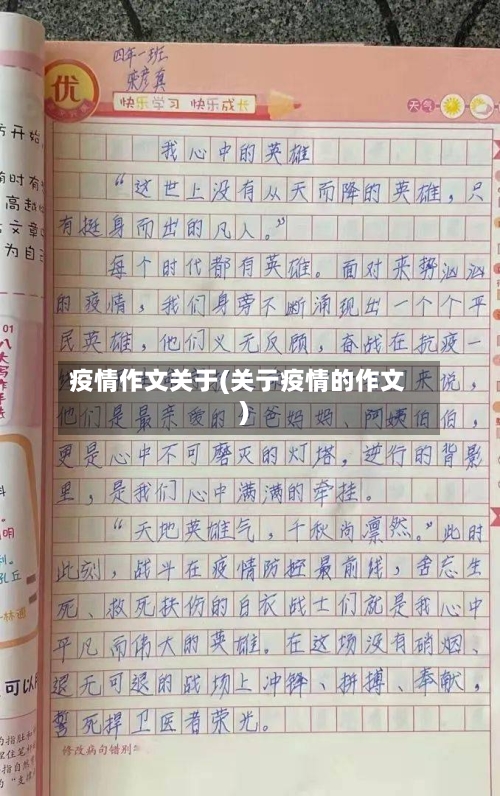 四年一班
优
快乐学习 快乐成长
天气
我心中的英雄
“这世上没有从天而降的英雄，只
有挺身而出的凡人。”
每个时代都有英雄。面对来势汹汹
的疫情，我们身旁不断涌现出一个个平
民英雄，他们义无反顾，奋战在抗疫一
疫情作文关于(关于疫情的作文
)
来说，
他们是最亲爱的爸爸妈妈、阿姨伯伯，
更是心中不可磨灭的灯塔，逆行的背影
里，是我们心中满满的牵挂。
“天地英雄气，千秋尚凛然。”此时
此刻，战斗在疫情防控最前线，舍忘生
死、救死扶伤的白衣战士们就是我心中
平凡而伟大的英雄。在这场没有硝烟、
退无可退的战场上冲锋、拼搏、奉献，
誓死捍卫医者荣光。
修改病句错别